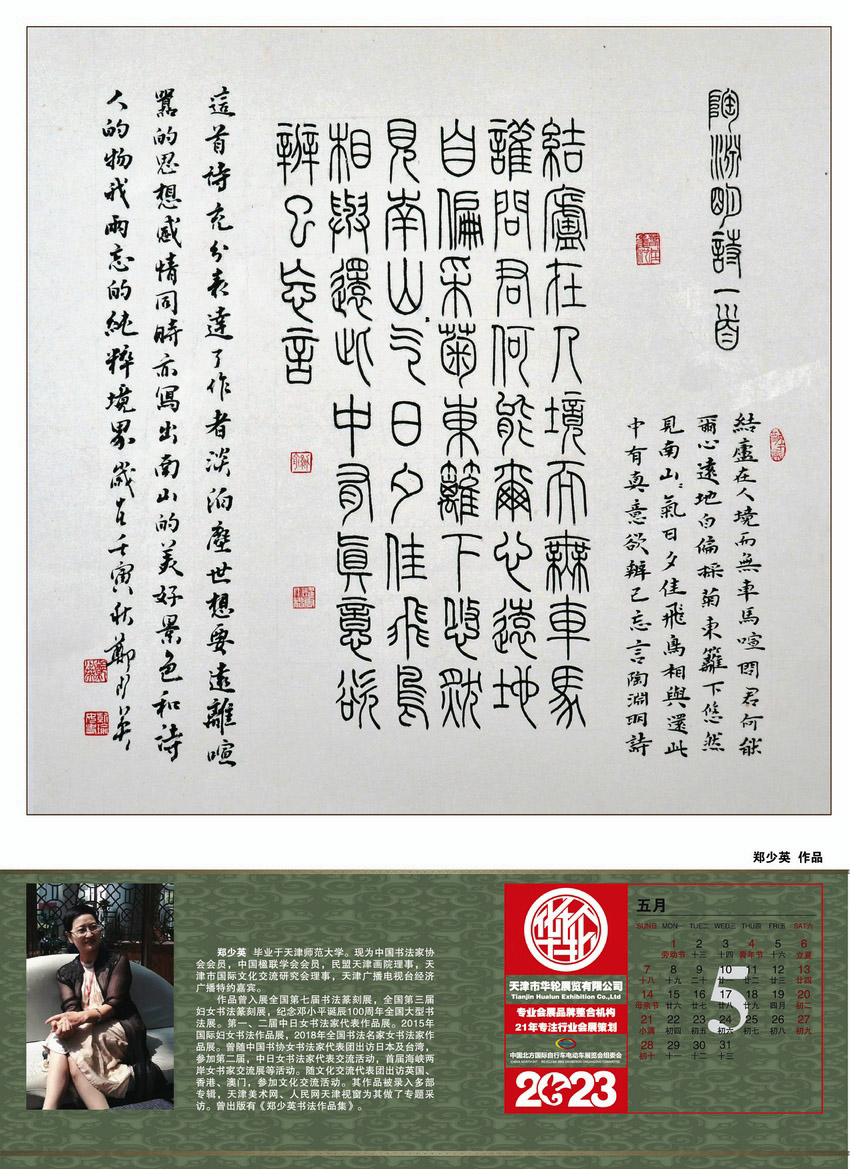 陶淵明詩一首
結廬在人境而無車馬喧問君何能
爾心遠地自偏採菊東籬下悠然
見南山氣日夕佳飛鳥相與還此
中有真意欲辨已忘言陶淵明詩
結廬在人境而無車馬
誰問君何能爾心遠地
自偏采菊東籬下悠然
見南山气日夕佳飛鳥
相與還此中有真意欲
辨已忘言
這首詩充分表達了作者淡泊塵世想要遠離喧
囂的思想感情同時亦寫出南山的美好景色和詩
人的物我兩忘的純粹境界歲在壬寅秋鄭少英
郑少英 作品
郑少英 毕业于天津师范大学。现为中国书法家协
会会员，中国楹联学会会员，民盟天津画院理事，天
津市国际文化交流研究会理事，天津广播电视台经济
广播特约嘉宾。
作品曾入展全国第七届书法篆刻展，全国第三届
妇女书法篆刻展，纪念邓小平诞辰100周年全国大型书
法展。第一、二届中日女书法家代表作品展。2015年
国际妇女书法作品展，2018年全国书法名家女书法家作
品展。曾随中国书协女书法家代表团出访日本及台湾，
参加第二届，中日女书法家代表交流活动，首届海峡两
岸女书家交流展等活动。随文化交流代表团出访英国、
香港、澳门，参加文化交流活动。其作品被录入多部
专辑，天津美术网、人民网天津视窗为其做了专题采
访。曾出版有《郑少英书法作品集》。
华轮
天津市华轮展览有限公司
Tianjin Hualun Exhibition Co.,Ltd
专业会展品牌整合机构
21年专注行业会展策划
中国北方国际自行车电动车展览会组委会
2023
五月
5
SUN日 MON一 TUE二 WED三 THU四 FRI五 SAT六
1 2 3 4 5 6
劳动节 十三 十四 青年节 十六 立夏
7 8 9 10 11 12 13
十八 十九 二十 廿一 廿二 廿三 廿四
14 15 16 17 18 19 20
母亲节 廿六 廿七 廿八 廿九 四月 初二
21 22 23 24 25 26 27
小满 初四 初五 初六 初七 初八 初九
28 29 30 31
初十 十一 十二 十三